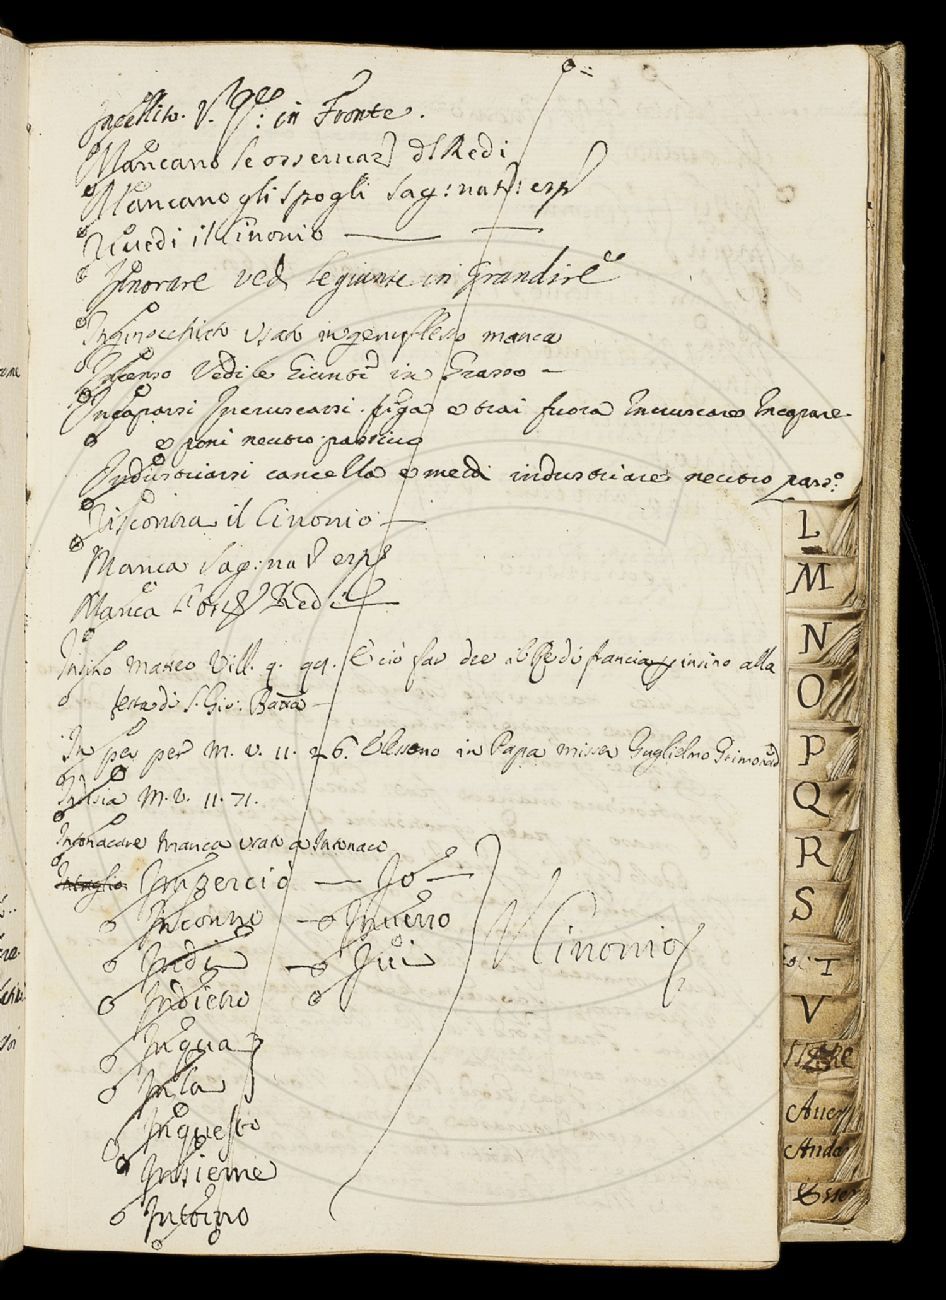 in Fronte.
Mancano le osservaz dl Redi
Mancano gli spogli Sag: nat: esp
Rivedi il Cinonio
Ignorare ved le giunte in Grandire
Inginocchiato usato in genuflesso manca
Incenso Vedi le Giunte in Grasso
Incaparsi Incruscarsi. figa e trai fuora Incruscare Incapare.
e poni neutro passivo
Industriarsi cancella e metti industriare neutro pass:
Riscontra il Cinonio
Manca Sag: nat esp
Manca Redi
Matteo Vill. 9. E ciò far dee il Re di francia insino alla
festa di S. Gio: Batta
In per per M. V. 11. 26. Elessono in Papa messer Guglielmo Grimoardi
M. V. 11. 71.
Intonacare manca usato a Intonaco
Intaglio Imperciò — Io —
Incontro — Inverso
Indi — Ivi
Indietro
Il Cinonio
In qua
In la
In questo
Insieme
Intorno
L
M
N
O
P
Q
R
S
T
V
Aver
Anda
Esser